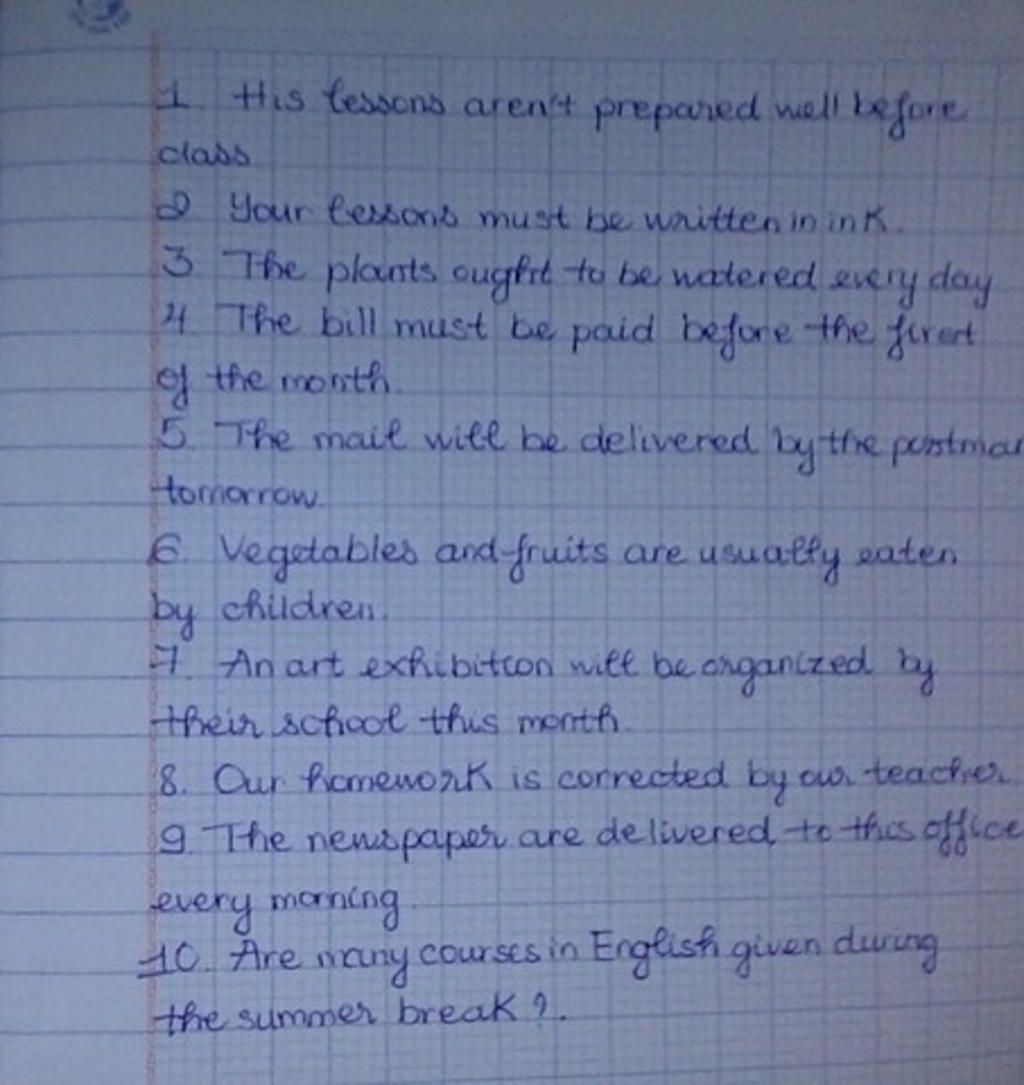 1. His lessons aren't prepared well before
class
2 Your lessons must be written in ink.
3 The plants ought to be watered every day
4. The bill must be paid before the first
of the month.
5. The mail will be delivered by the postman
tomorrow.
6. Vegetables and fruits are usually eaten
by children.
7. An art exhibition will be organized by
their school this month.
8. Our homework is corrected by our teacher
9. The newspaper are delivered to this office
every morning.
10. Are many courses in English given during
the summer break?.